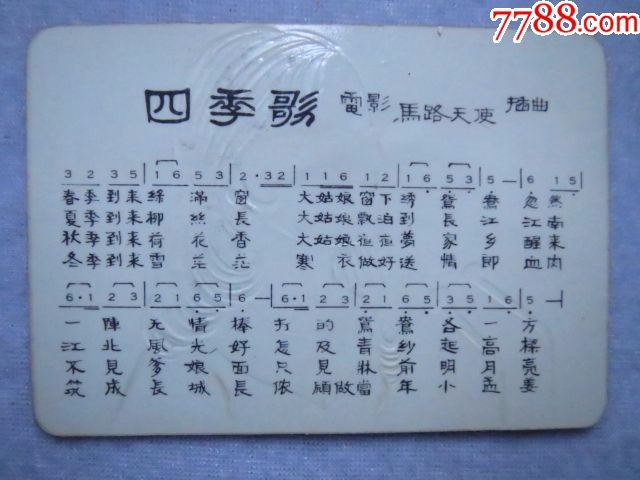 7788.com
四季歌 電影 馬路天使 插曲
3 2 3 5 1 6 5 3 2·32 1 1 6 2 1 6 5 5 3 5— 6 1 5
春季到来綠滿窗 大姑娘窗下綉鴛鴦 忽然
夏季到来柳絲長 大姑娘飘泊到長江 江南
秋季到来荷花香 大姑娘夜夜夢家乡 醒来
冬季到来雪茫茫 寒衣做好送情郎 血肉
6·1 2 3 2 1 6 5 6— 6·1 2 3 2 1 6 5 3 5 6 1 5—
一陣无情棒 打的鴛鴦各一方
江北風光好 怎及青紗起高樑
不見爹娘面 只見床前明月亮
筑成長城長 侬願做當年小孟姜